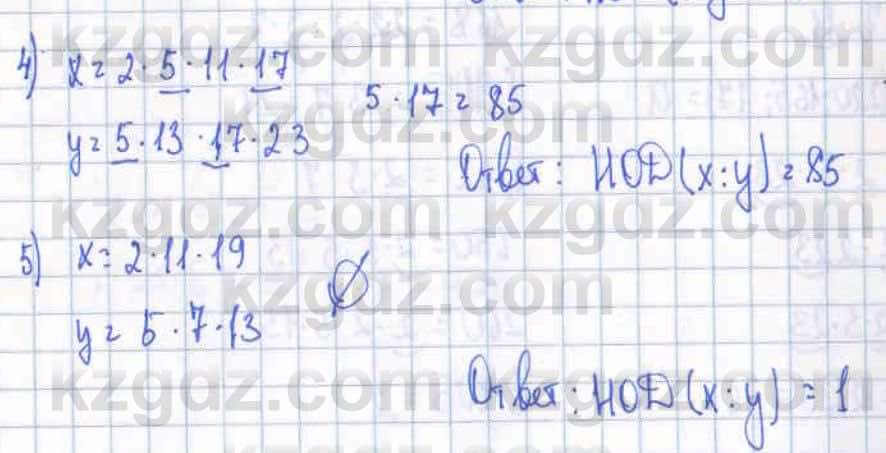 4) x = 2 · 5 · 11 · 17
y = 5 · 13 · 17 · 23
5 · 17 = 85
Ответ: НОД(x:y) = 85
5) x = 2 · 11 · 19
y = 5 · 7 · 13
∅
Ответ: НОД(x:y) = 1
kzgdz.com kzgdz.com
kzgdz.com kzgdz.com
kzgdz.com kzgdz.com
kzgdz.com kzgdz.com
kzgdz.com kzgdz.com